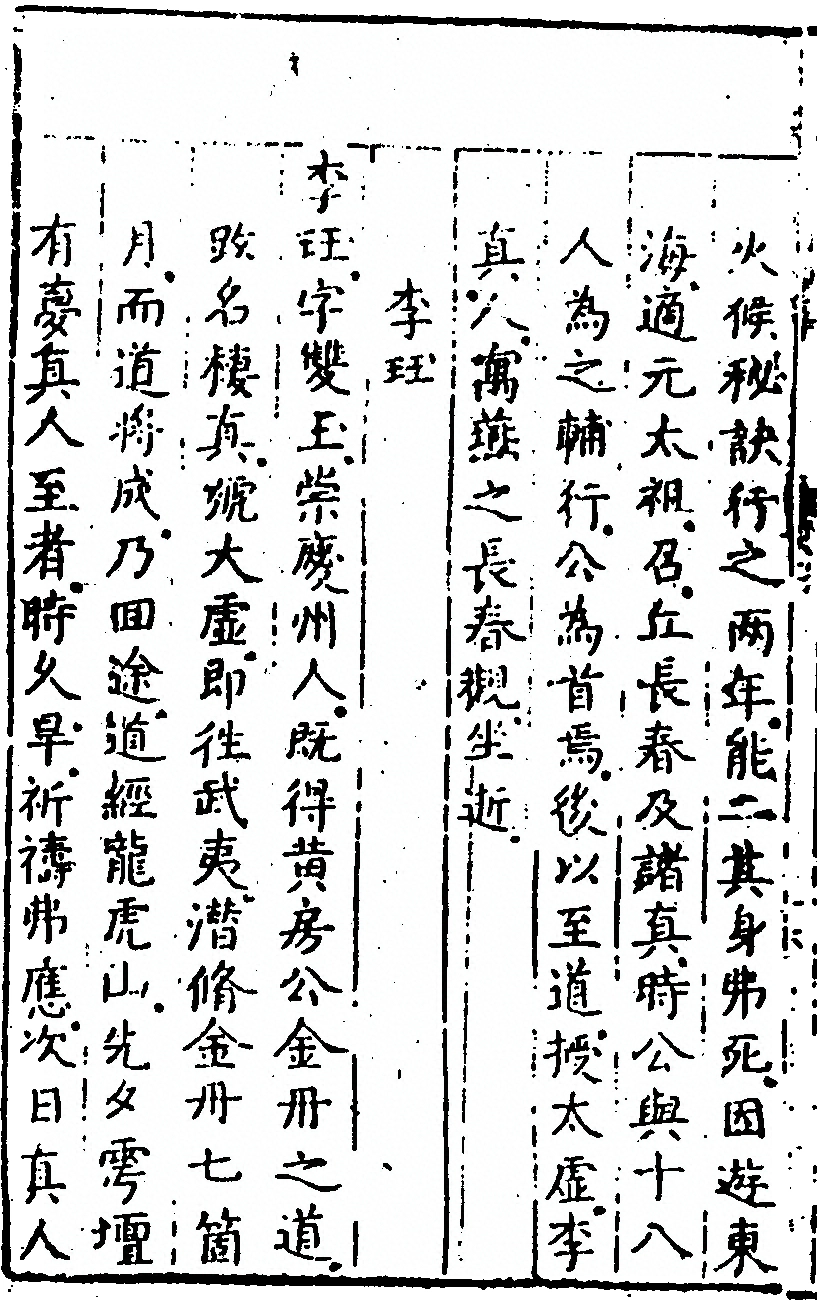 火候秘訣行之两年能二其身弗死因遊東
海適元太祖召丘長春及諸真時公與十八
人為之輔行公為首焉後以至道授太虛李
真人寓燕之長春觀坐逝
李珏
李珏字雙玉崇慶州人既得黄房公金丹之道
改名棲真號太虛即往武夷潛脩金丹七箇
月而道將成乃回途道經龍虎山先夕雩壇
有憂真人至者時久旱祈禱弗應次日真人